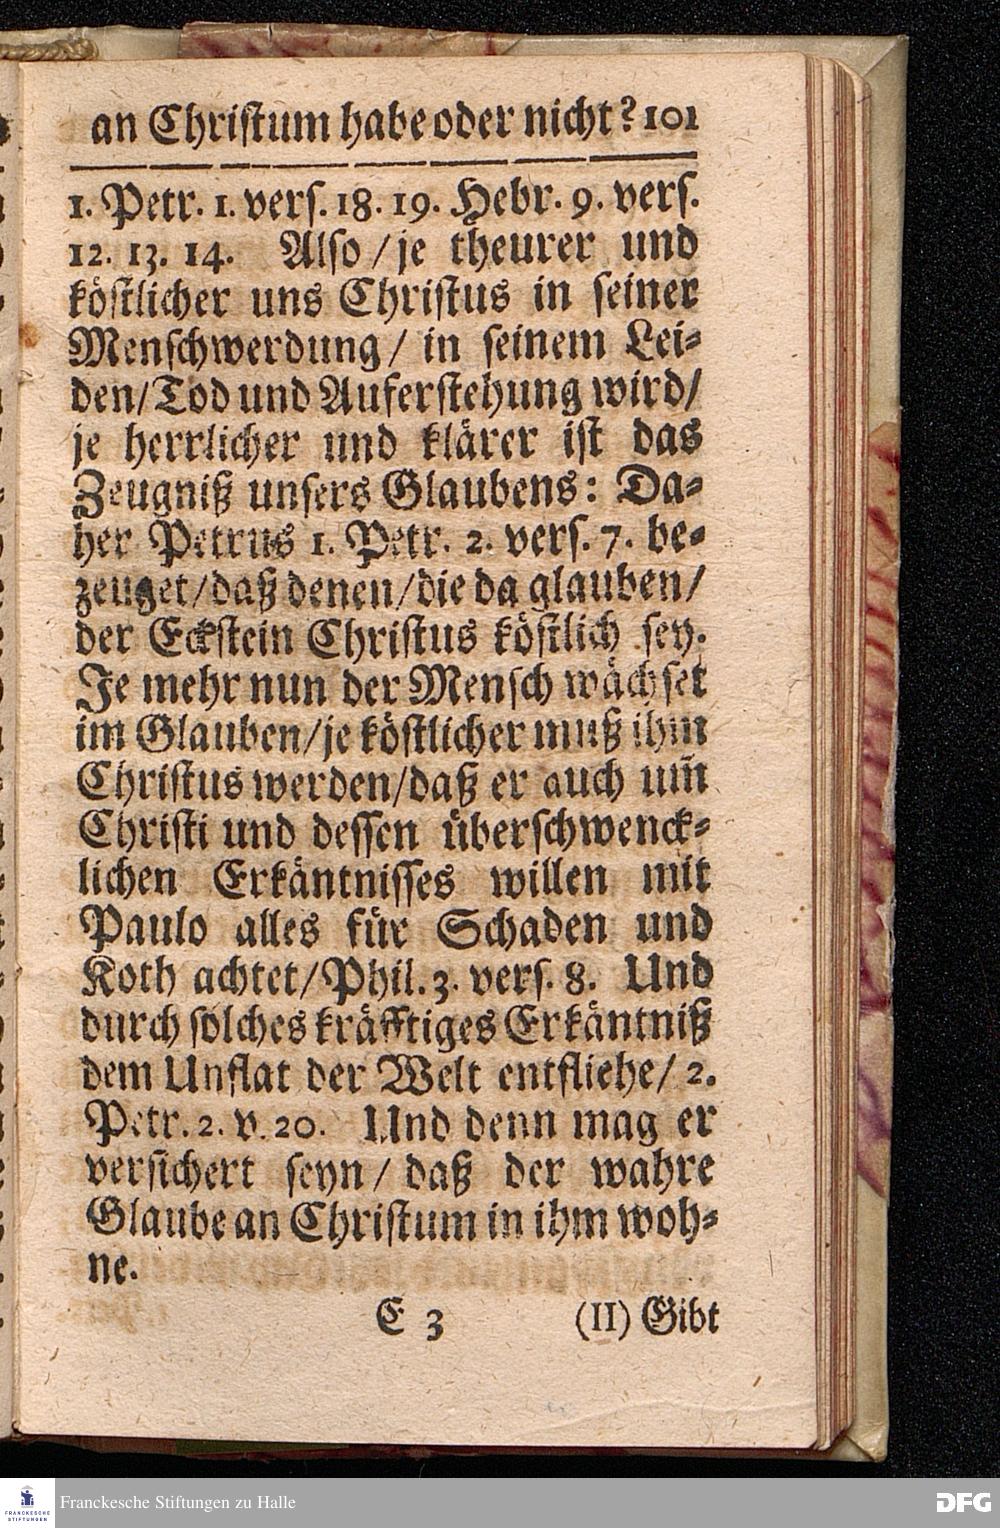 an Christum habe oder nicht? 101
1. Petr. 1. vers. 18. 19. Hebr. 9. vers.
12. 13. 14. Also / je theurer und
köstlicher uns Christus in seiner
Menschwerdung / in seinem Lei⸗
den / Tod und Auferstehung wird /
je herrlicher und klärer ist das
Zeugniß unsers Glaubens: Da⸗
her Petrus 1. Petr. 2. vers. 7. be⸗
zeuget / daß denen / die da glauben /
der Eckstein Christus köstlich sey.
Je mehr nun der Mensch wächset
im Glauben / je köstlicher muß ihm
Christus werden / daß er auch um̃
Christi und dessen überschwenck⸗
lichen Erkäntnisses willen mit
Paulo alles für Schaden und
Koth achtet / Phil. 3. vers. 8. Und
durch solches kräfftiges Erkäntniß
dem Unflat der Welt entfliehe / 2.
Petr. 2. v. 20. Und denn mag er
versichert seyn / daß der wahre
Glaube an Christum in ihm woh⸗
ne.
E 3 (II) Gibt
Franckesche Stiftungen zu Halle
FRANCKESCHE
STIFTUNGEN
DFG